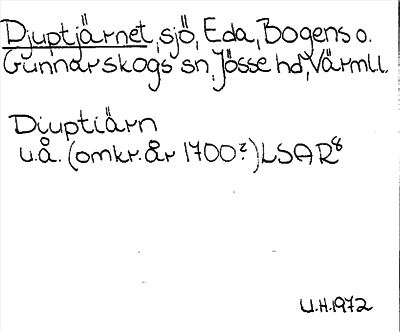 Djuptjärnet, sjö, Eda, Bogens o.
Gunnarskogs sn, Jösse hd, Värml.
Diuptiärn
u.å. (omkr. år 1700?) LSAR⁸
U.H. 1972